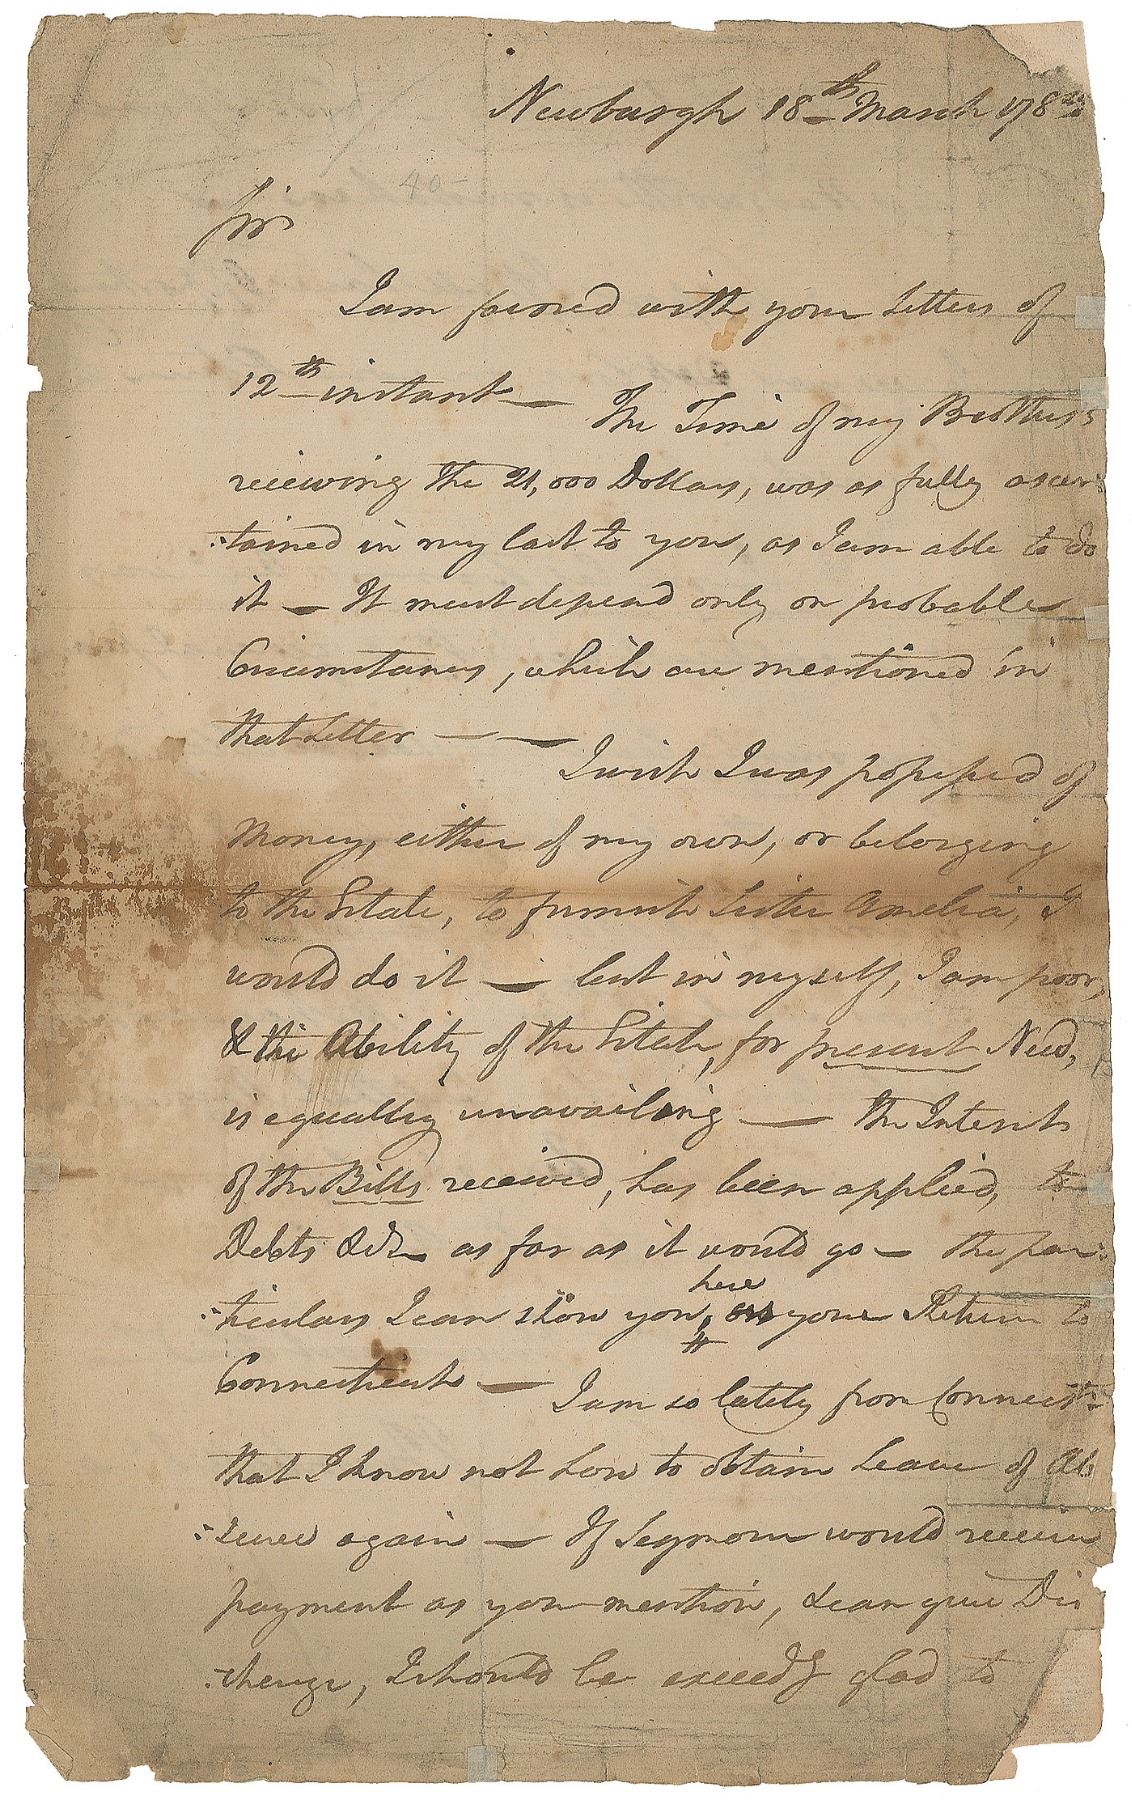 Newburgh 18th March 178
40
Sir
I am favored with your Letters of
12th instant —
The Time of my Brothers
receiving the 21,000 Dollars, was as fully ascer-
:tained in my last to you, as I am able to do
it — It must depend only on probable
Circumstances, which are mentioned in
that Letter — —
I wish I was possessed of
Money, either of my own, or belonging
to the Estate, to furnish Sister Amelia, I
would do it — but in myself, I am poor,
& the Ability of the Estate, for present Need,
is equally unavailing — the Interest
of the Bills received, has been applied, to
Debts &c — as far as it would go — the par:
:ticulars I can show you, here on your Return to
Connecticut —
I am so lately from Connect:
that I know not how to obtain Leave of Ab
:sence again — If Seymour would receive
payment as you mention, & can give Dis
:charge, I should be exceedg glad to